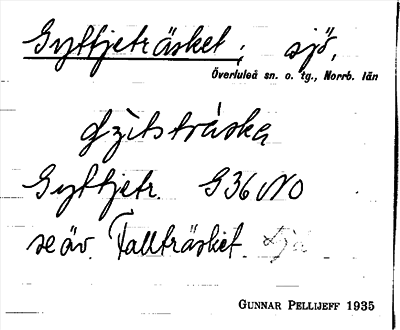 Gyttjeträsket, sjö,
Överluleå sn. o. tg., Norrb. län
Gyttjetr. G36 NO
se äv. Tallträsket
GUNNAR PELLIJEFF 1935